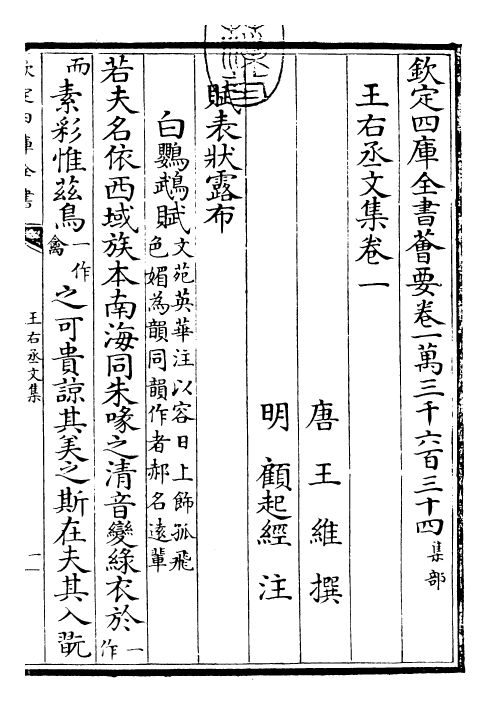 欽定四庫全書薈要卷一萬三千六百三十四 集部
王右丞文集卷一
唐 王維 撰
明 顧起經 注
賦表狀露布
白鸚鵡賦 文苑英華注以容日上飾孤飛
色媚為韻同韻作者郝名遠輩
若夫名依西域族本南海同朱喙之清音變綠衣於 一作
而 素彩惟茲鳥 一作禽 之可貴諒其美之斯在夫其入翫
欽定四庫全書
王右丞文集
一